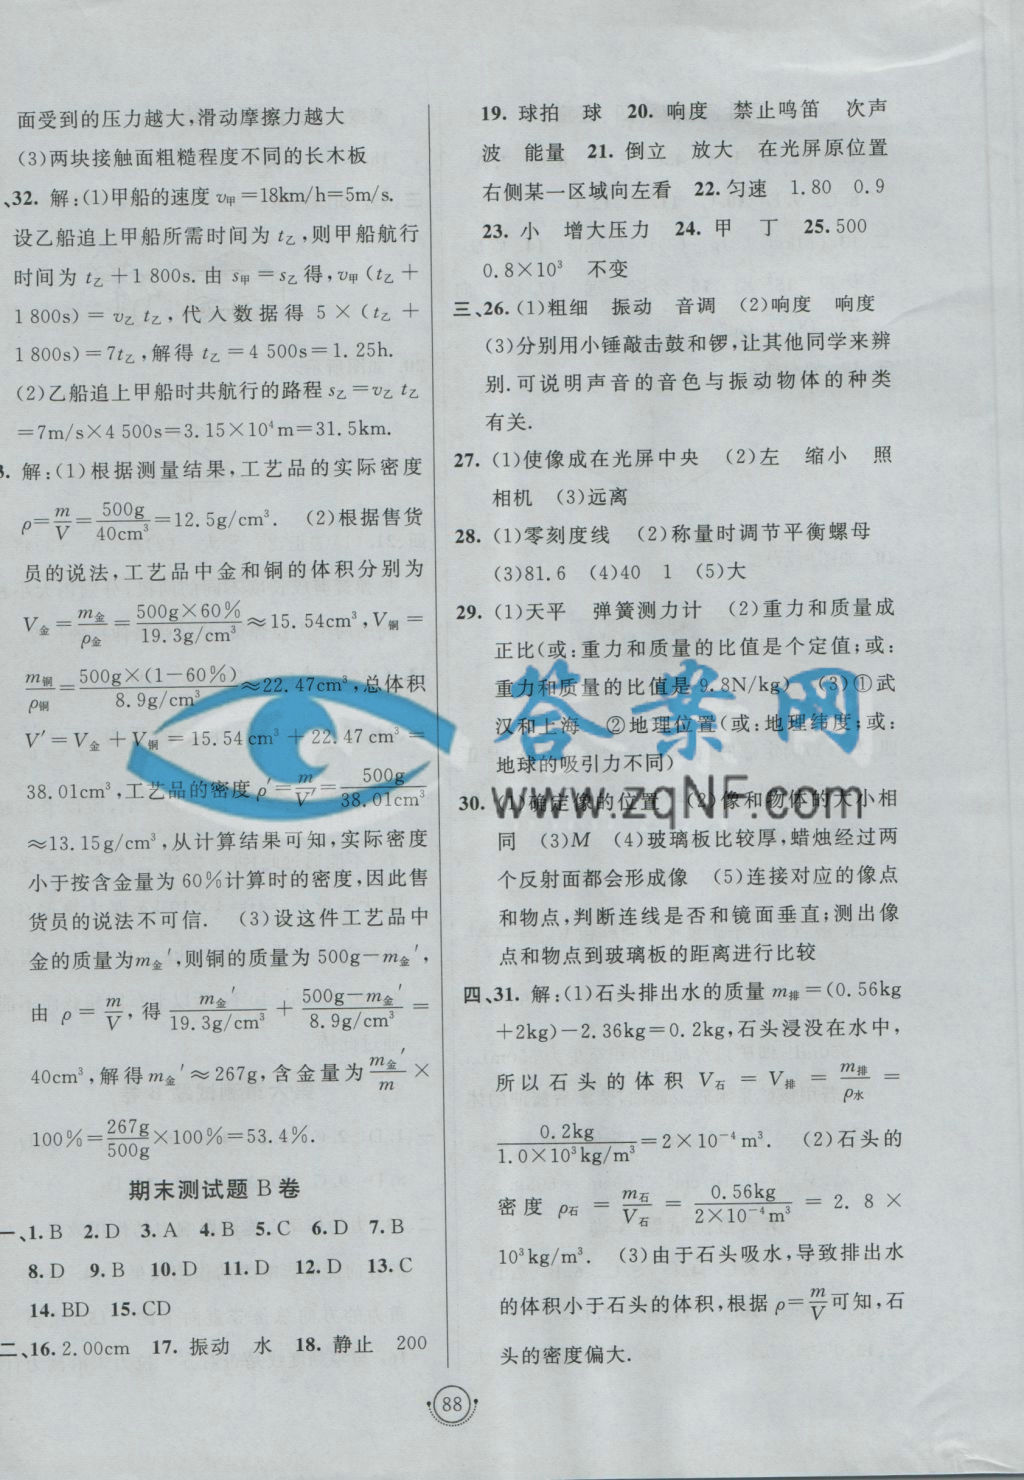 面受到的压力越大,滑动摩擦力越大
(3)两块接触面粗糙程度不同的长木板
、32. 解:(1)甲船的速度 v甲=18km/h=5m/s.
设乙船追上甲船所需时间为 t乙,则甲船航行
时间为 t乙+1 800s. 由 s甲=s乙 得, v甲(t乙+
1 800s)=v乙 t乙, 代入数据得 5×(t乙+
1 800s)=7t乙, 解得 t乙=4 500s=1. 25h.
(2)乙船追上甲船时共航行的路程 s乙=v乙 t乙
=7m/s×4 500s=3. 15×10⁴m=31. 5km.
3. 解:(1)根据测量结果,工艺品的实际密度
ρ=m/V=500g/40cm³=12. 5g/cm³. (2)根据售货
员的说法,工艺品中金和铜的体积分别为
V金=m金/ρ金=500g×60%/19. 3g/cm³≈15. 54cm³, V铜=
m铜/ρ铜=500g×(1-60%)/8. 9g/cm³≈22. 47cm³,总体积
V′=V金+V铜=15. 54 cm³+22. 47 cm³=
38. 01cm³,工艺品的密度 ρ′=m/V′=500g/38. 01cm³
≈13. 15g/cm³,从计算结果可知,实际密度
小于按含金量为 60%计算时的密度,因此售
货员的说法不可信. (3)设这件工艺品中
金的质量为m金′,则铜的质量为 500g-m金′,
由 ρ=m/V, 得 m金′/19. 3g/cm³+500g-m金′/8. 9g/cm³=
40cm³,解得 m金′≈267g,含金量为m金′/m×
100%=267g/500g×100%=53. 4%.
期末测试题 B 卷
一、1. B 2. D 3. A 4. B 5. C 6. D 7. B
8. D 9. B 10. D 11. D 12. D 13. C
14. BD 15. CD
二、16. 2. 00cm 17. 振动 水 18. 静止 200
19. 球拍 球 20. 响度 禁止鸣笛 次声
波 能量 21. 倒立 放大 在光屏原位置
右侧某一区域向左看 22. 匀速 1. 80 0. 9
23. 小 增大压力 24. 甲 丁 25. 500
0. 8×10³ 不变
三、26. (1)粗细 振动 音调 (2)响度 响度
(3)分别用小锤敲击鼓和锣,让其他同学来辨
别. 可说明声音的音色与振动物体的种类
有关.
27. (1)使像成在光屏中央 (2)左 缩小 照
相机 (3)远离
28. (1)零刻度线 (2)称量时调节平衡螺母
(3)81. 6 (4)40 1 (5)大
29. (1)天平 弹簧测力计 (2)重力和质量成
正比(或:重力和质量的比值是个定值;或:
重力和质量的比值是 9. 8N/kg) (3)①武
汉和上海 ②地理位置(或:地理纬度;或:
地球的吸引力不同)
30. (1)确定像的位置 (2)像和物体的大小相
同 (3)M (4)玻璃板比较厚,蜡烛经过两
个反射面都会形成像 (5)连接对应的像点
和物点,判断连线是否和镜面垂直;测出像
点和物点到玻璃板的距离进行比较
四、31. 解:(1)石头排出水的质量 m排=(0. 56kg
+2kg)-2. 36kg=0. 2kg,石头浸没在水中,
所以石头的体积 V石=V排=m排/ρ水=
0. 2kg/1. 0×10³kg/m³=2×10⁻⁴m³. (2)石头的
密度 ρ石=m石/V石=0. 56kg/2×10⁻⁴m³=2. 8×
10³kg/m³. (3)由于石头吸水,导致排出水
的体积小于石头的体积,根据 ρ=m/V可知,石
头的密度偏大.
88
答案网
www.zqNF.com